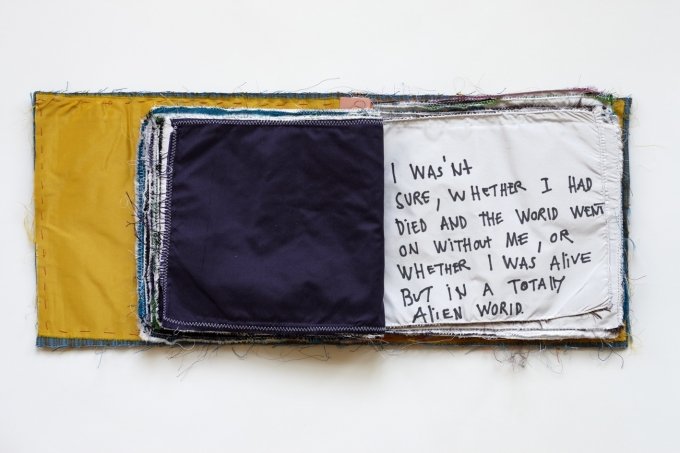 I WAS'Nt
SURE, WHETHER I HAD
DIED AND THE WORLD WENT
ON WITHOUT ME, OR
WHETHER I WAS ALIVE
BUT IN A TOTALLY
ALIEN WORLD.